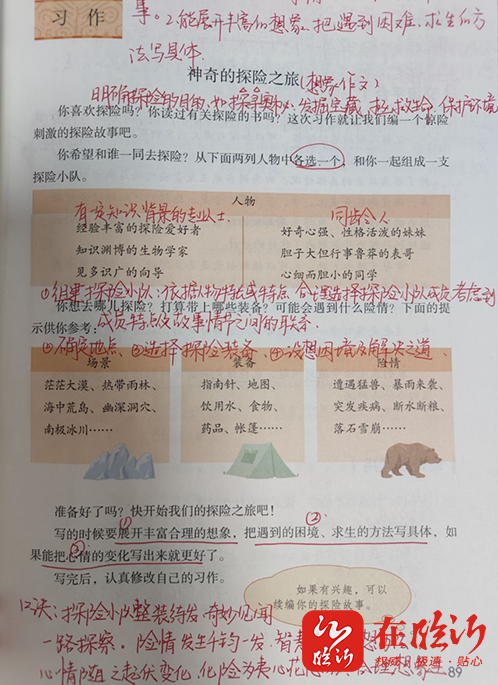 习作
事。2.能展开丰富的想象,把遇到困难、求生的方
法写具体
神奇的探险之旅(想象作文)
明确探险的目的,如探寻奥秘、发掘宝藏、拯救生命、保护环境
你喜欢探险吗?你读过有关探险的书吗?这次习作就让我们编一个惊险
刺激的探险故事吧。
你希望和谁一同去探险?从下面两列人物中各选一个,和你一起组成一支
探险小队。
人物
有一定知识背景的专业人士 同龄人
经验丰富的探险爱好者 好奇心强、性格活泼的妹妹
知识渊博的生物学家 胆子大但行事鲁莽的表哥
见多识广的向导 心细而胆小的同学
①组建探险小队:依据人物特点 合理选择探险小队成员考虑到
你想去哪儿探险?打算带上哪些装备?可能会遇到什么险情?下面的提
示供你参考:
成员特点及故事情节之间的联系
②确定地点、③选择探险装备、④设想困境及解决之道
场景 装备 险情
茫茫大漠、热带雨林、 指南针、地图、 遭遇猛兽、暴雨来袭、
海中荒岛、幽深洞穴、 饮用水、食物、 突发疾病、断水断粮、
南极冰川…… 药品、帐篷…… 落石雪崩……
准备好了吗?快开始我们的探险之旅吧!
① ②
写的时候要展开丰富合理的想象,把遇到的困境、求生的方法写具体,如
③
果能把心情的变化写出来就更好了。
写完后,认真修改自己的习作。
如果有兴趣,可以
续编你的探险故事。
口诀:探险小队整装待发,奇妙见闻
一路探察。险情发生千钧一发,智慧
心情随之起伏变化,化险为夷心花
在临沂
临沂
权威·极速·贴心
89